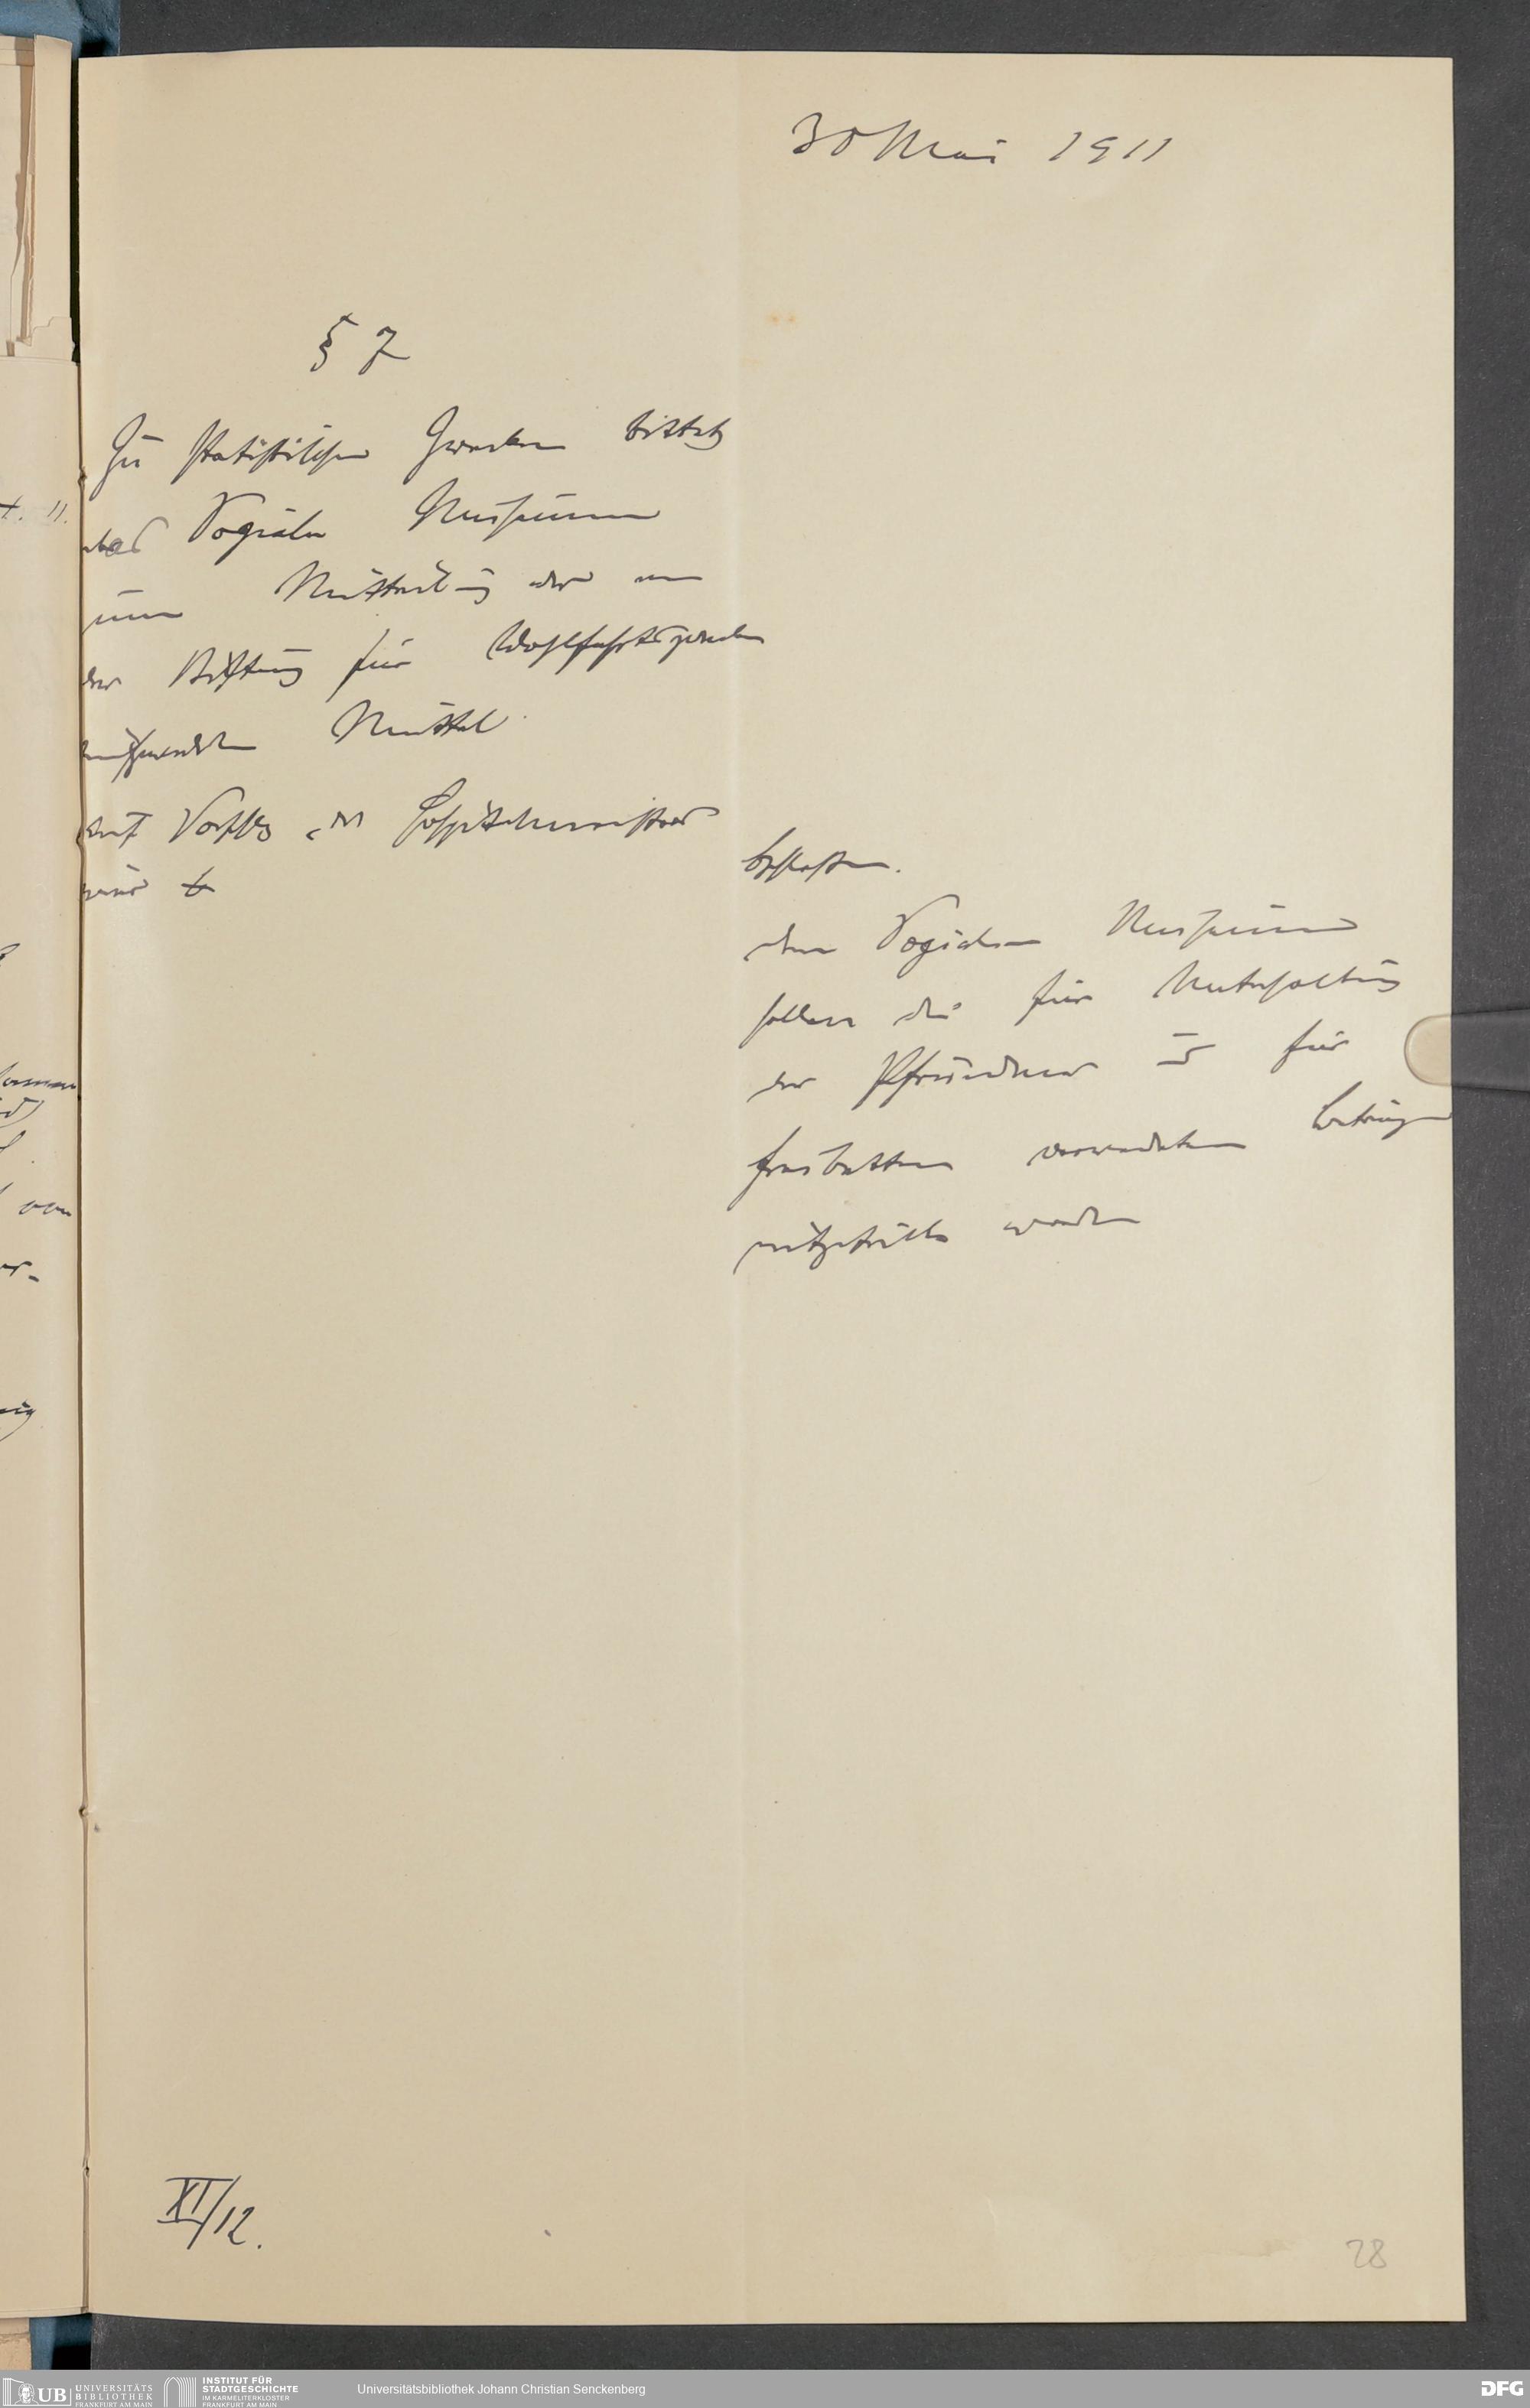 30 Mai 1911
§ 7
Zu statistischen Zwecken bittet
das Soziale Museum
um Mitteilung der von
der Stiftung für Wohlfahrtszwecke
aufgewendeten Mittel
auf Vorschlag des Hospitalmeisters
wird
beschlossen.
dem Sozialen Museum
sollen die für Unterhaltung
der Pfründner und für
Freibetten verwendeten Beträge
mitgeteilt werden
XI/12.
28
UB
UNIVERSITÄTS
BIBLIOTHEK
FRANKFURT AM MAIN
INSTITUT FÜR
STADTGESCHICHTE
IM KARMELITERKLOSTER
FRANKFURT AM MAIN
Universitätsbibliothek Johann Christian Senckenberg
DFG